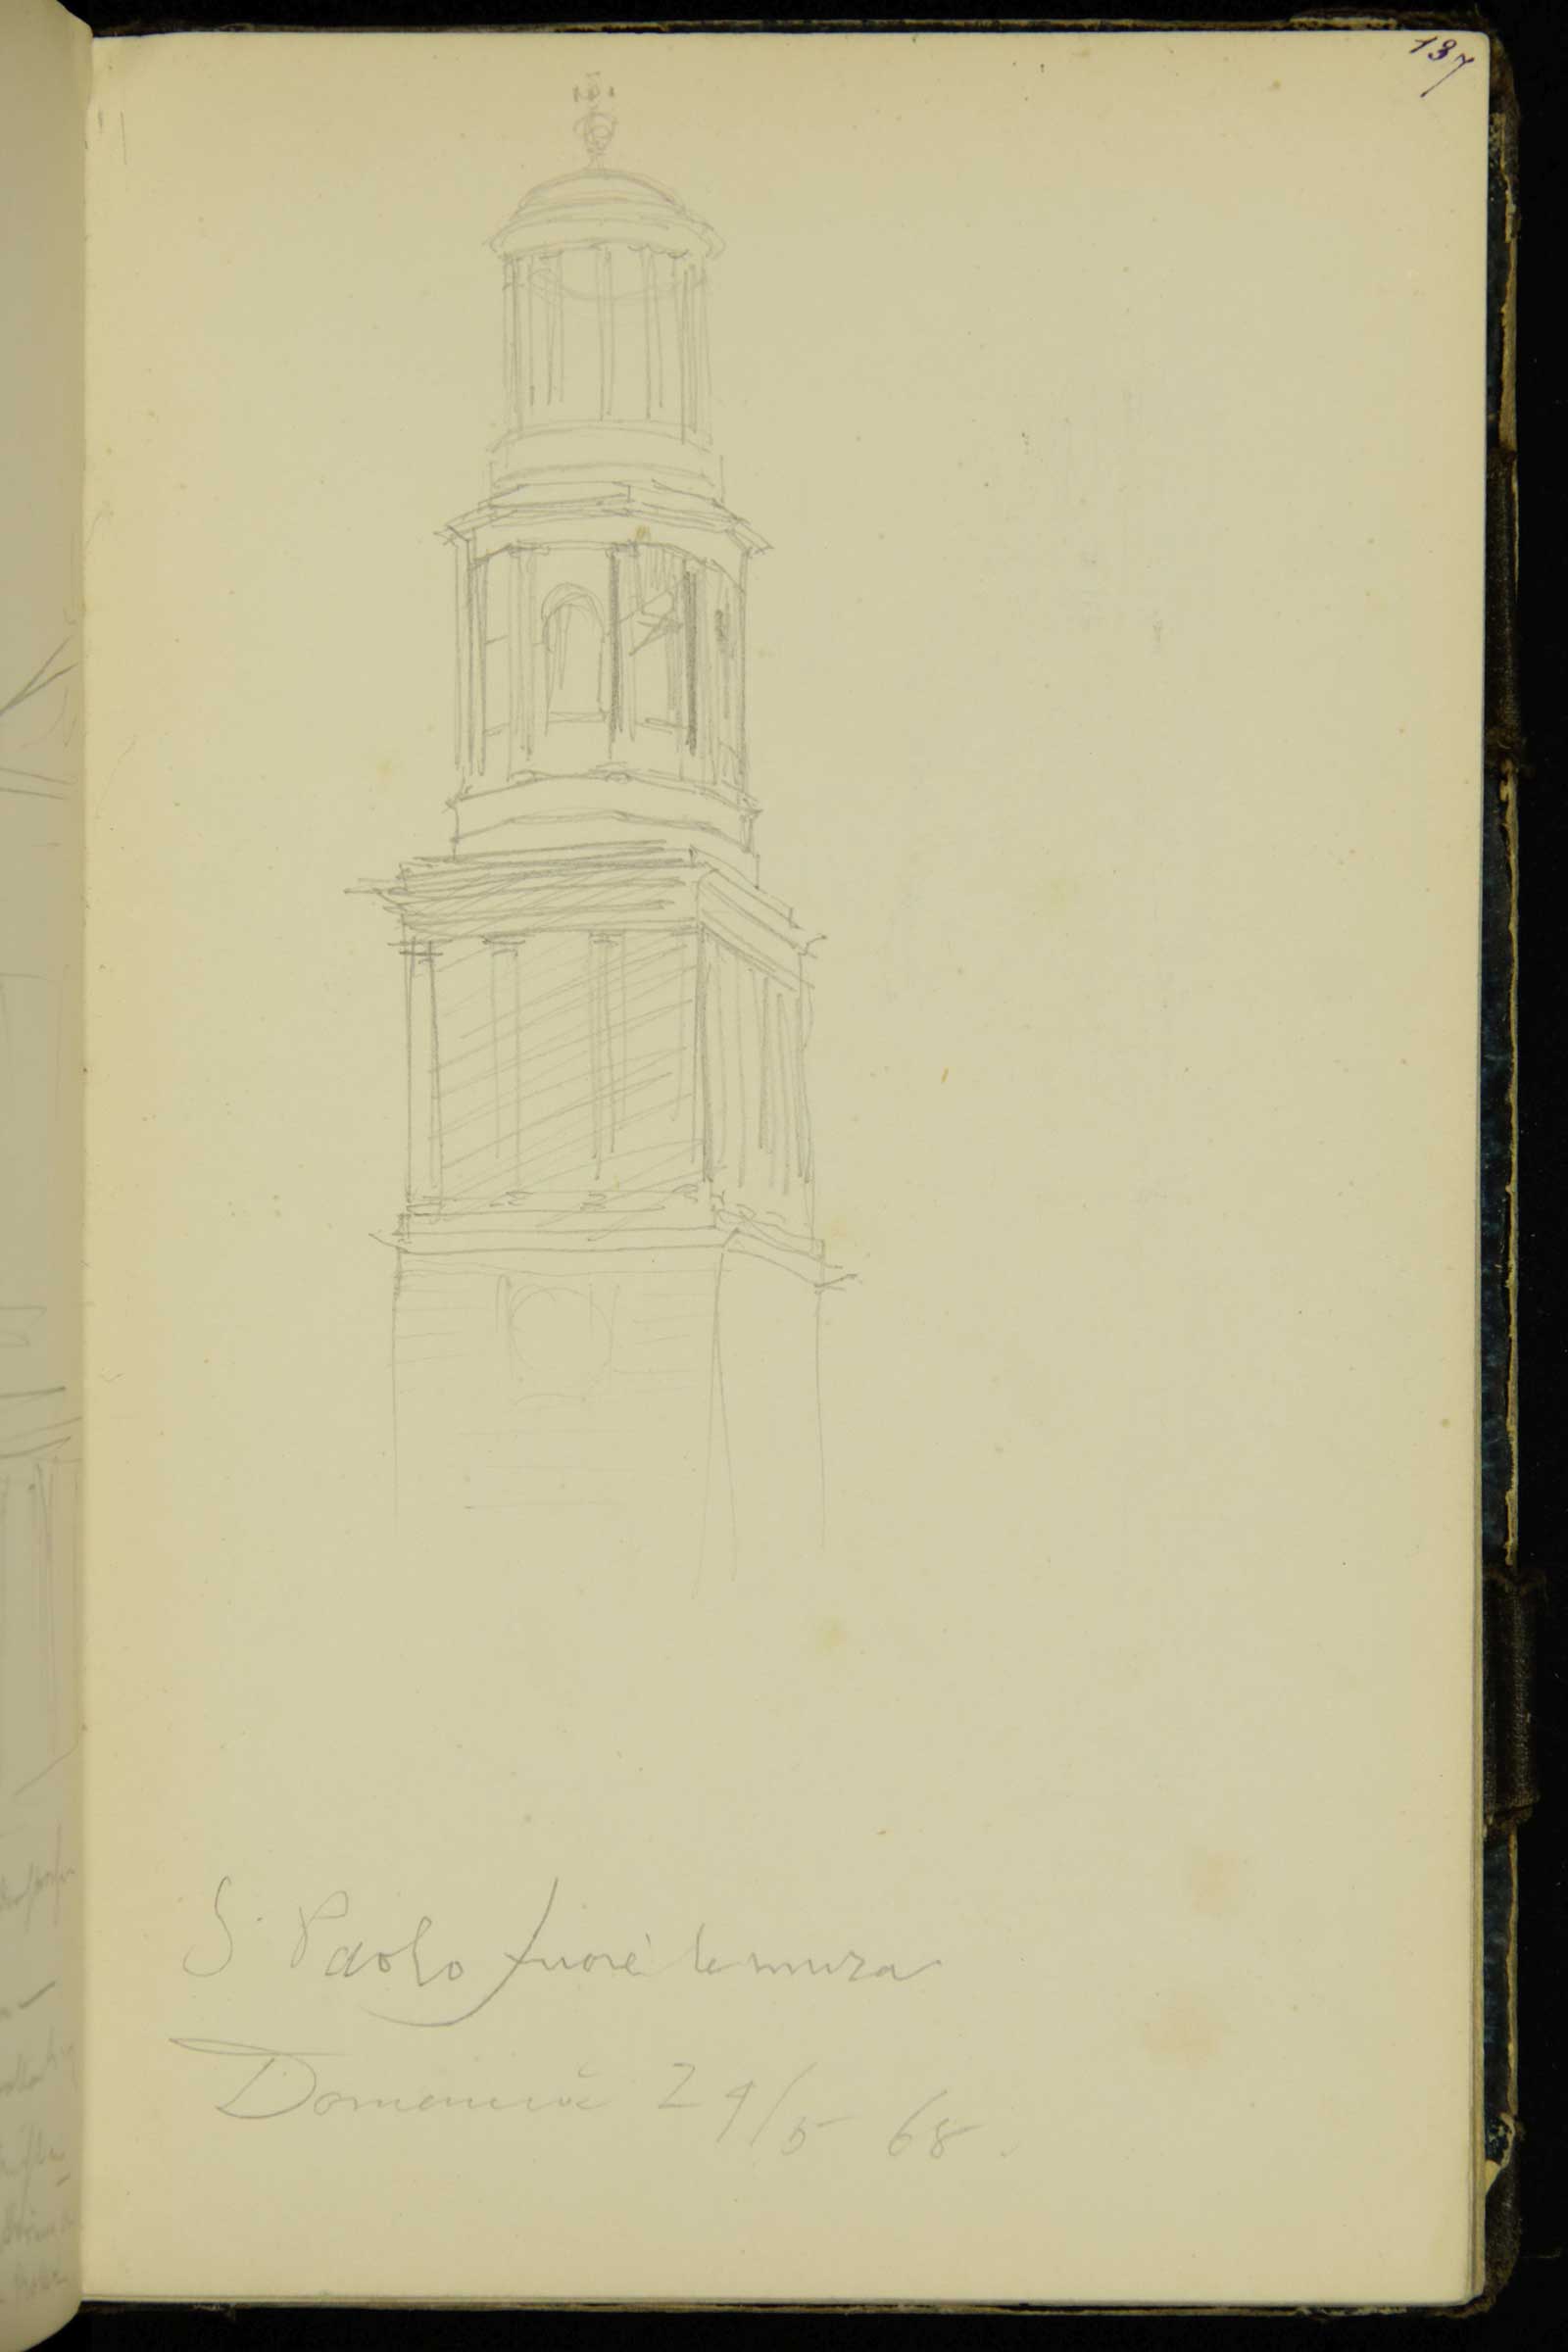 137
S. Paolo fuori le mura
Domenica 24/5 68.